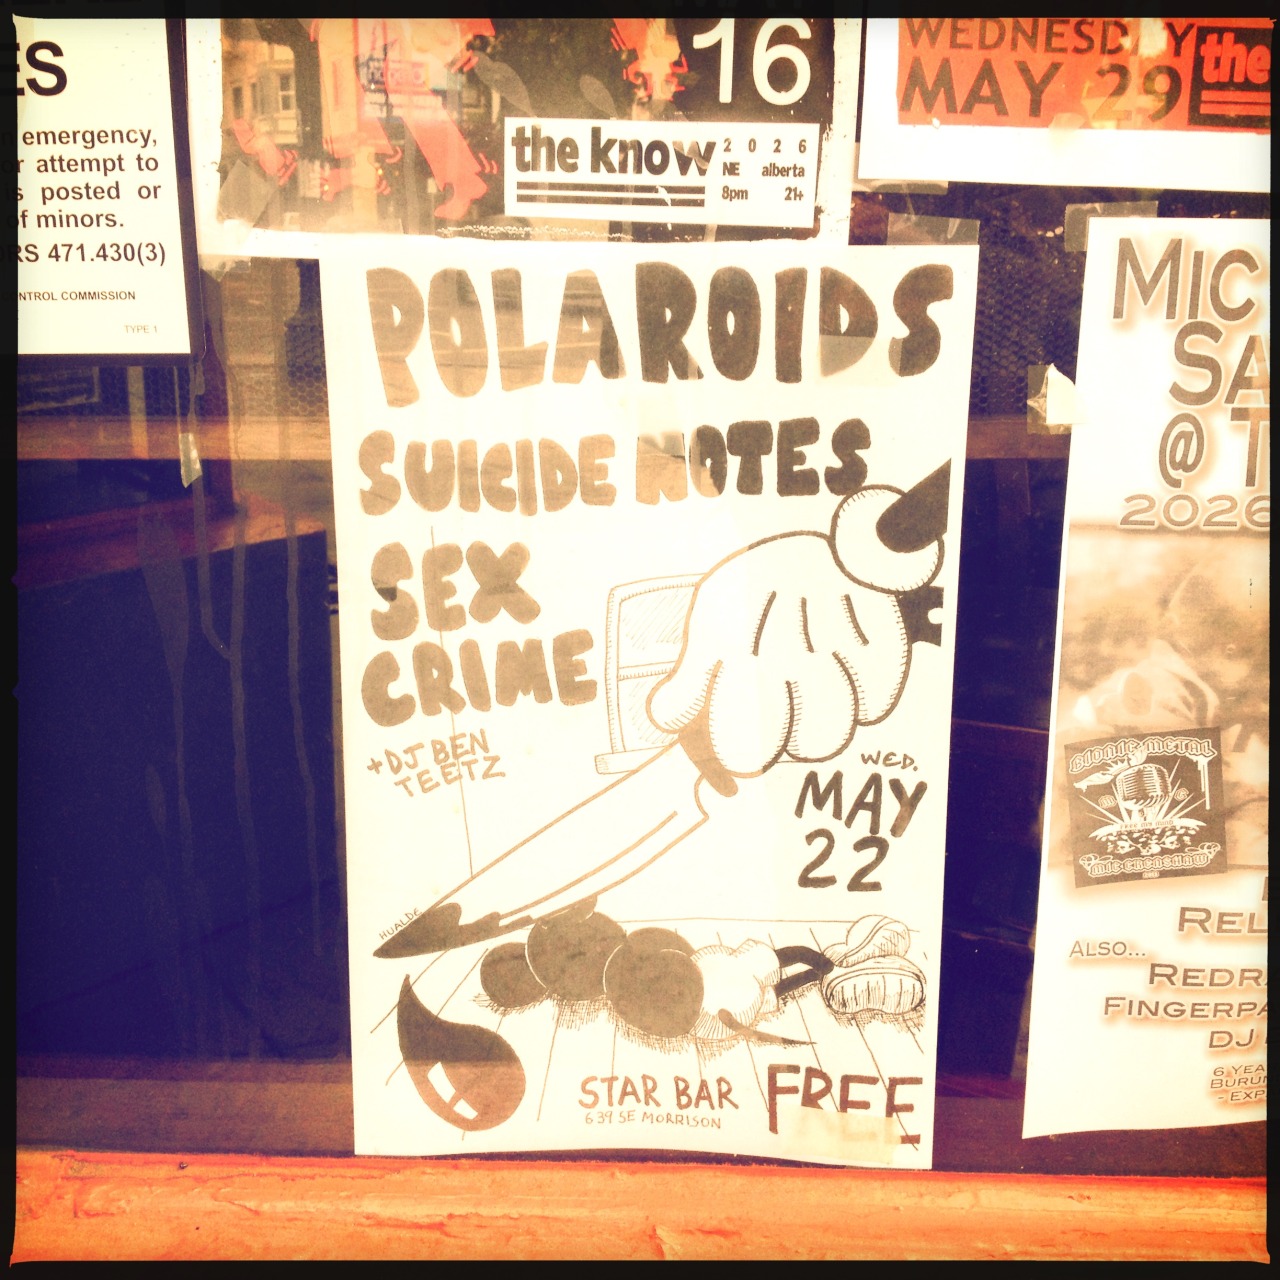 ES
emergency,
or attempt to
is posted or
of minors.
ORS 471.430(3)
CONTROL COMMISSION
TYPE 1
16
the know
2026
NE alberta
8pm 21+
WEDNESDAY
MAY 29
the
POLAROIDS
SUICIDE NOTES
SEX
CRIME
+DJ BEN
TEETZ
WED.
MAY
22
HUALDE
STAR BAR
639 SE MORRISON
FREE
MIC
SA
@ T
2026
BIONIC METAL
M G
FREE MY MIND
MIC CRENSHAW
REL
ALSO...
REDRA
FINGERPA
DJ
6 YEA
BURUN
- EXP